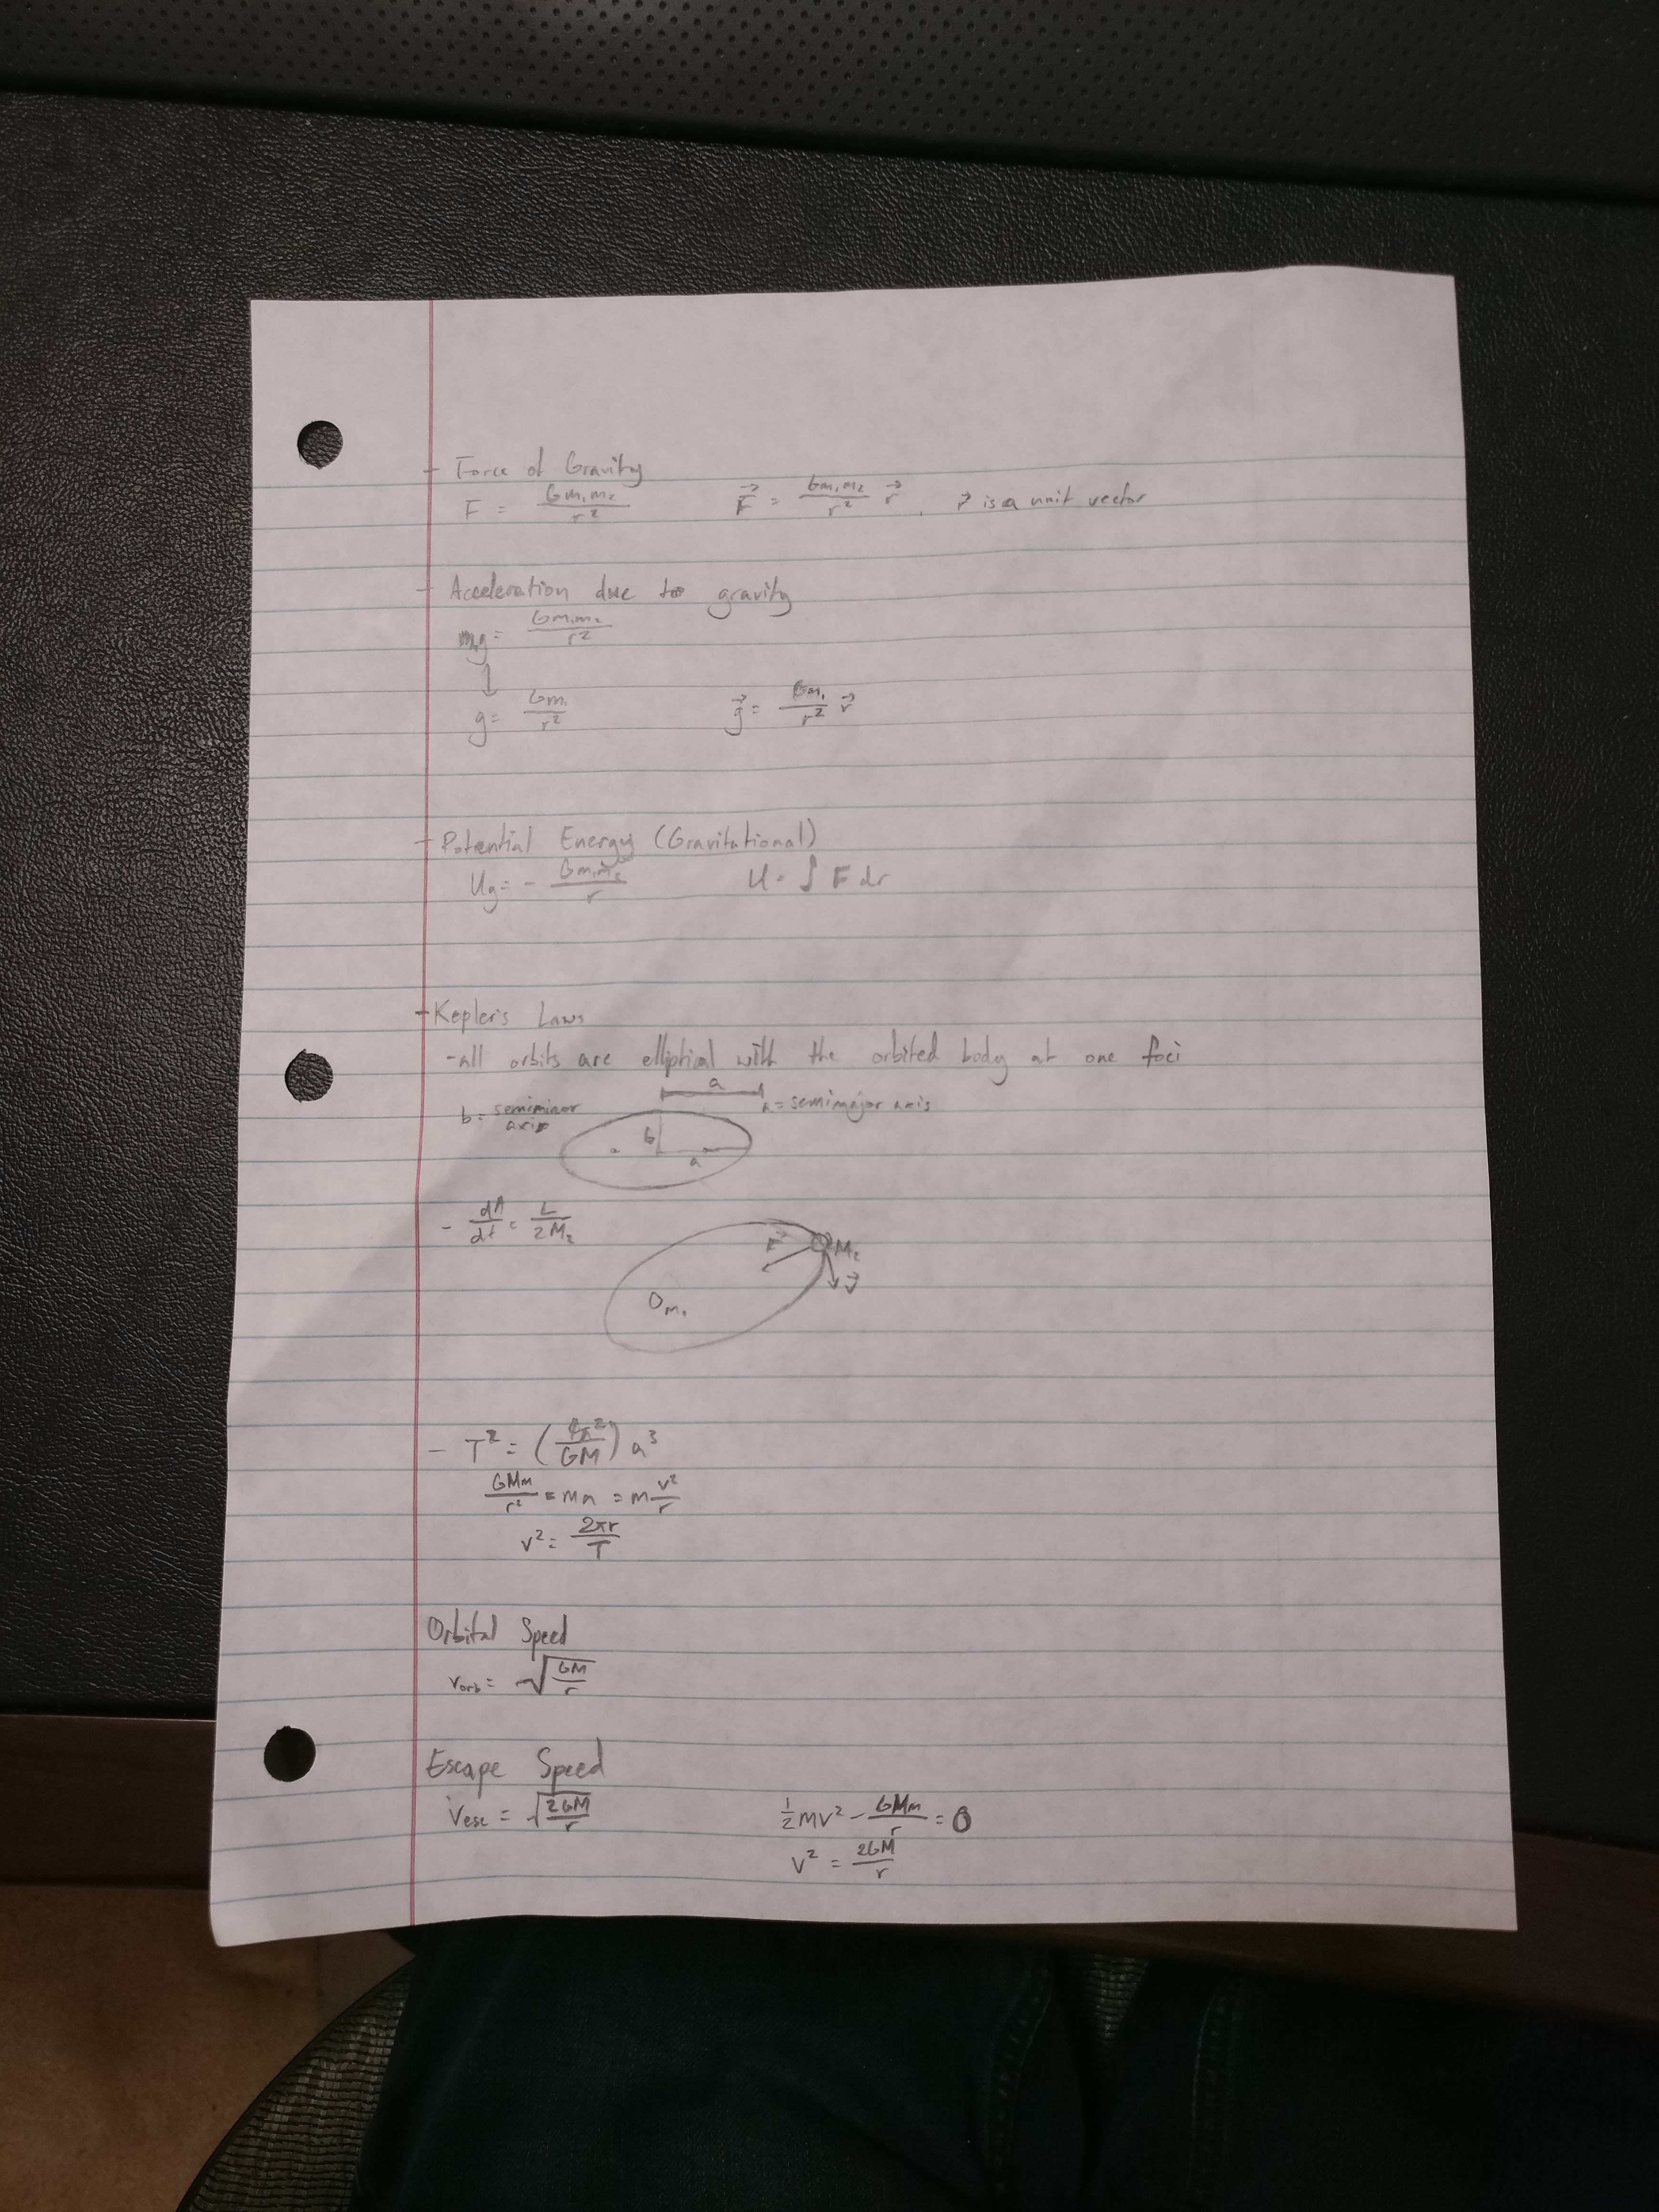 - Force of Gravity
F = Gm₁m₂/r²    F⃗ = Gm₁m₂/r² r⃗ , r⃗ is a unit vector
- Acceleration due to gravity
m₂g = Gm₁m₂/r²
↓
g = Gm₁/r²    g⃗ = Gm₁/r² r⃗
- Potential Energy (Gravitational)
Ug = - Gm₁m₂/r    U = ∫ F dr
- Kepler's Laws
- all orbits are elliptical with the orbited body at one foci
a
b = semiminor axis    a = semimajor axis
b
a
- dA/dt = L/2M₂    F⃗    M₂
v⃗
M₁
- T² = (4π²/GM) a³
GMm/r² = ma = m v²/r
v² = 2πr/T
Orbital Speed
v_orb = √(GM/r)
Escape Speed
v_esc = √(2GM/r)    ½mv² - GMm/r = 0
v² = 2GM/r